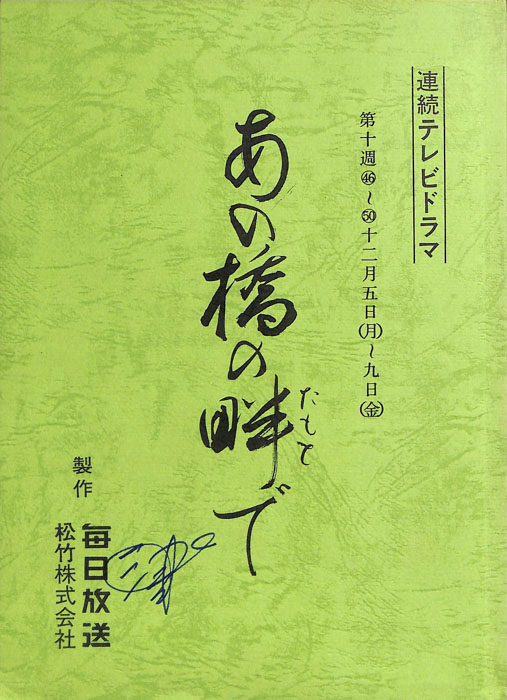 連続テレビドラマ
第十週㊻～㊿十二月五日(月)～九日(金)
あの橋の畔で
たもと
製作
毎日放送
松竹株式会社